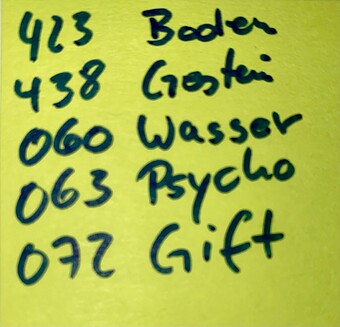 423 Boden
438 Gestein
060 Wasser
063 Psycho
072 Gift